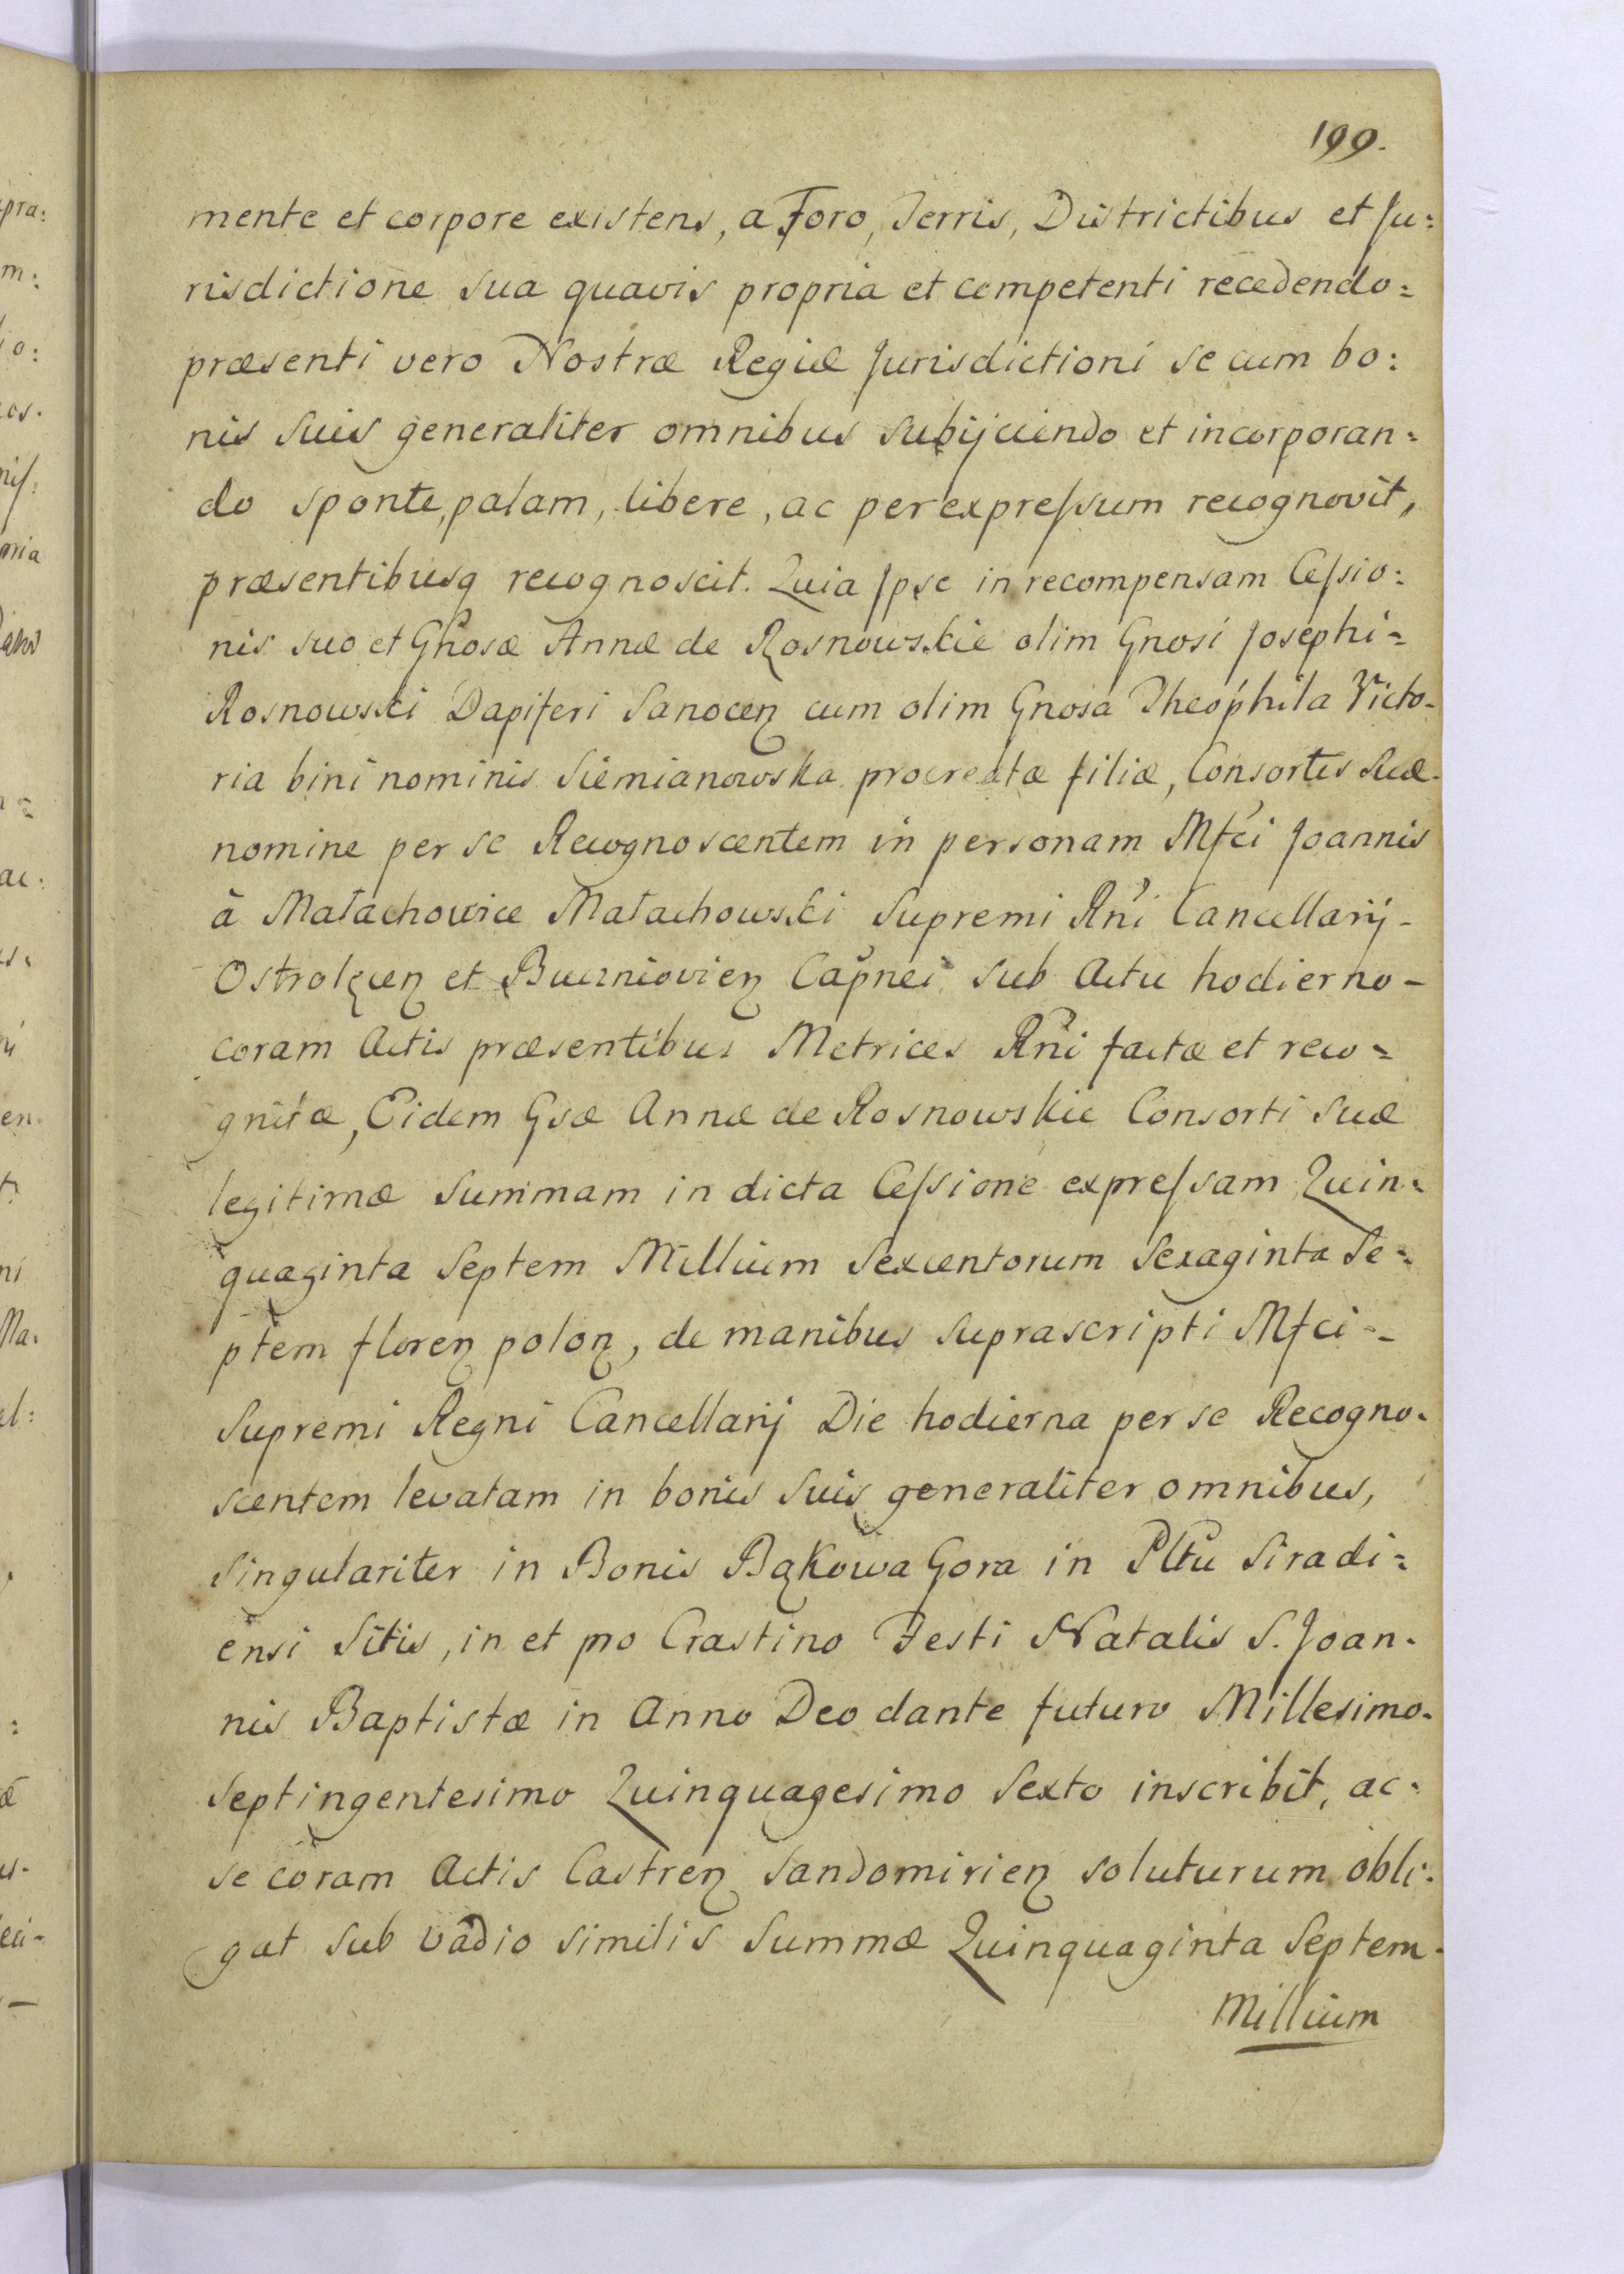 199.
mente et corpore existens, a Foro, Terris, Districtibus et Ju:
risdictione sua quavis propria et competenti recedendo =
præsenti vero Nostræ Regiæ Jurisdictioni se cum bo:
nis suis generaliter omnibus subijciendo et incorporan =
do sponte, palam, libere, ac per expreſsum recognovit,
præsentibusq recognoscit. Quia Ipse in recompensam Ceſsio:
nis suo et Gnosæ Annæ de Rosnowskie olim Gnosi Josephi =
Rosnowski Dapiferi Sanocen cum olim Gnosa Theophila Victo-
ria bini nominis Siemianowska procreatæ filiæ, Consortis suæ
nomine per se Recognoscentem in personam Mfci Joannis
à Małachowice Małachowski Supremi Rni Cancellarij -
Ostrołęcen et Buczniovien Capnei sub Actu hodierno -
coram Actis præsentibus Metrices Rni factæ et reco =
gnitæ, Eidem Gsæ Annæ de Rosnowskie Consorti suæ
legitimæ summam in dicta Ceſsione expreſsam Quin =
quaginta Septem Millium Sexcentorum Sexaginta Se =
ptem floren polon, de manibus suprascripti Mfci -
Supremi Regni Cancellarij Die hodierna per se Recogno-
scentem levatam in bonis suis generaliter omnibus,
singulariter in Bonis Bąkowa Gora in Pltu Siradi =
ensi Sitis, in et pro Crastino Festi Natalis S. Joan-
nis Baptistæ in Anno Deo dante futuro Millesimo-
Septingentesimo Quinquagesimo Sexto inscribit, ac =
se coram Actis Castren Sandomirien soluturum obli:
gat sub vadio similis Summæ Quinquaginta Septem-
Millium